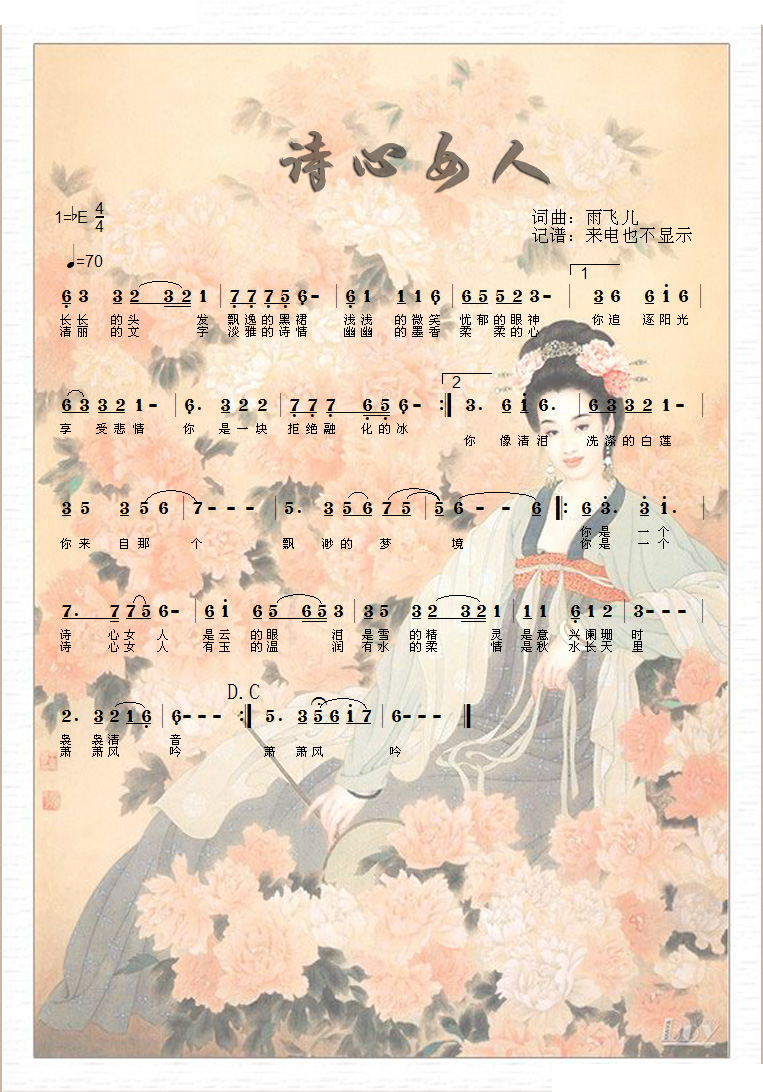 诗心女人
1=♭E 4/4
词曲：雨飞儿
记谱：来电也不显示
♩=70
1
6̣ 3 3 2 3 2 1 | 7̣ 7̣ 7̣ 5̣ 6̣ – | 6̣ 1 1 1 6̣ | 6 5 5 2 3 – | 3 6 6 i 6 |
长长 的头 发 飘逸的黑裙 浅浅 的微笑 忧郁的眼神 你追 逐阳光
清丽 的文 字 淡雅的诗情 幽幽 的墨香 柔 柔的心
2
6 3 3 2 1 – | 6̣. 3 2 2 | 7̣ 7̣ 7̣ 6̣ 5̣ 6̣ – :‖ 3. 6 i 6. | 6 3 3 2 1 – |
享 受悲情 你 是一块 拒绝融 化的冰
你 像清泪 洗涤的白莲
3 5 3 5 6 | 7 – – – | 5. 3 5 6 7 5 | 5 6 – – 6 ‖: 6 3̇. 3̇ i. |
你是 一个
你来 自那 个 飘 渺的 梦 境 你是 一个
7. 7 7 5 6 – | 6 i 6 5 6 5 3 | 3 5 3 2 3 2 1 | 1 1 6̣ 1 2 | 3 – – – |
诗 心女 人 是云 的眼 泪 是雪 的精 灵 是意 兴阑珊 时
诗 心女 人 有玉 的温 润 有水 的柔 情 是秋 水长天 里
D.C
2. 3 2 1 6̣ | 6̣ – – – :‖ 5. 3 5 6 i 7 | 6 – – – ‖
袅 袅清 音
萧 萧风 吟 萧 萧风 吟